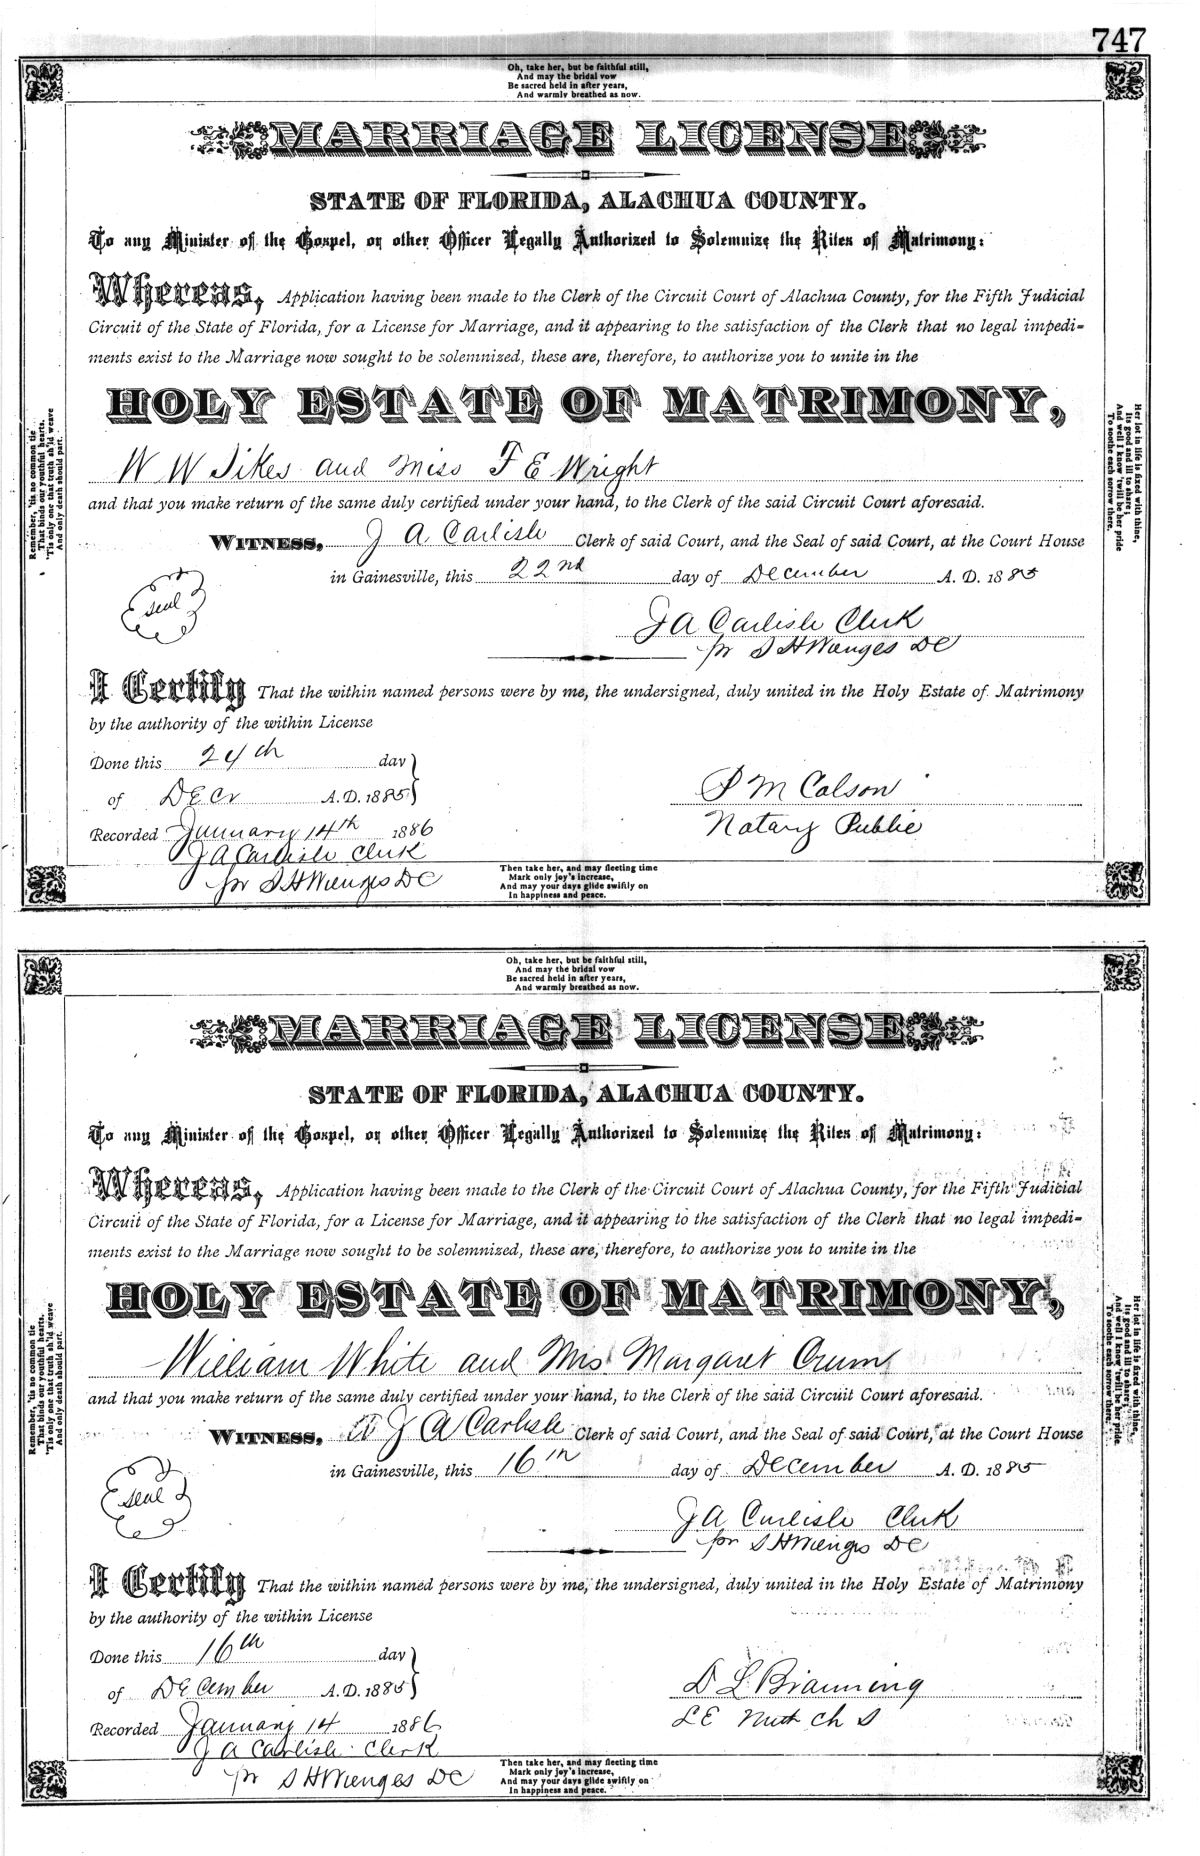 747
Oh, take her, but be faithful still,
And may the bridal vow
Be sacred held in after years,
And warmly breathed as now.
MARRIAGE LICENSE
STATE OF FLORIDA, ALACHUA COUNTY.
To any Minister of the Gospel, or other Officer Legally Authorized to Solemnize the Rites of Matrimony:
Whereas, Application having been made to the Clerk of the Circuit Court of Alachua County, for the Fifth Judicial
Circuit of the State of Florida, for a License for Marriage, and it appearing to the satisfaction of the Clerk that no legal impedi-
ments exist to the Marriage now sought to be solemnized, these are, therefore, to authorize you to unite in the
HOLY ESTATE OF MATRIMONY,
W W Sikes and Miss F E Wright
and that you make return of the same duly certified under your hand, to the Clerk of the said Circuit Court aforesaid.
WITNESS, J A Carlisle Clerk of said Court, and the Seal of said Court, at the Court House
in Gainesville, this 22nd day of December A. D. 1885
seal
J A Carlisle Clerk
pr S H Wienges DC
I Certify That the within named persons were by me, the undersigned, duly united in the Holy Estate of Matrimony
by the authority of the within License
Done this 24th day
of Decr A.D. 1885
P M Colson
Notary Public
Recorded January 14th 1886
J A Carlisle Clerk
pr S H Wienges DC
Then take her, and may fleeting time
Mark only joy's increase,
And may your days glide swiftly on
In happiness and peace.
Remember, 'tis no common tie
That binds our youthful hearts.
'Tis only one that truth sh'ld weave
And only death should part.
Her lot in life is fixed with thine,
Its good and ill to share;
And well I know 'twill be her pride
To soothe each sorrow there.
Oh, take her, but be faithful still,
And may the bridal vow
Be sacred held in after years,
And warmly breathed as now.
MARRIAGE LICENSE
STATE OF FLORIDA, ALACHUA COUNTY.
To any Minister of the Gospel, or other Officer Legally Authorized to Solemnize the Rites of Matrimony:
Whereas, Application having been made to the Clerk of the Circuit Court of Alachua County, for the Fifth Judicial
Circuit of the State of Florida, for a License for Marriage, and it appearing to the satisfaction of the Clerk that no legal impedi-
ments exist to the Marriage now sought to be solemnized, these are, therefore, to authorize you to unite in the
HOLY ESTATE OF MATRIMONY,
William White and Mrs Margaret Crum
and that you make return of the same duly certified under your hand, to the Clerk of the said Circuit Court aforesaid.
WITNESS, J A Carlisle Clerk of said Court, and the Seal of said Court, at the Court House
in Gainesville, this 16th day of December A. D. 1885
seal
J A Carlisle Clerk
pr S H Wienges DC
I Certify That the within named persons were by me, the undersigned, duly united in the Holy Estate of Matrimony
by the authority of the within License
Done this 16th day
of December A.D. 1885
D L Branning
L E Meth Ch S
Recorded January 14 1886
J A Carlisle Clerk
pr S H Wienges DC
Then take her, and may fleeting time
Mark only joy's increase,
And may your days glide swiftly on
In happiness and peace.
Remember, 'tis no common tie
That binds our youthful hearts.
'Tis only one that truth sh'ld weave
And only death should part.
Her lot in life is fixed with thine,
Its good and ill to share;
And well I know 'twill be her pride
To soothe each sorrow there.